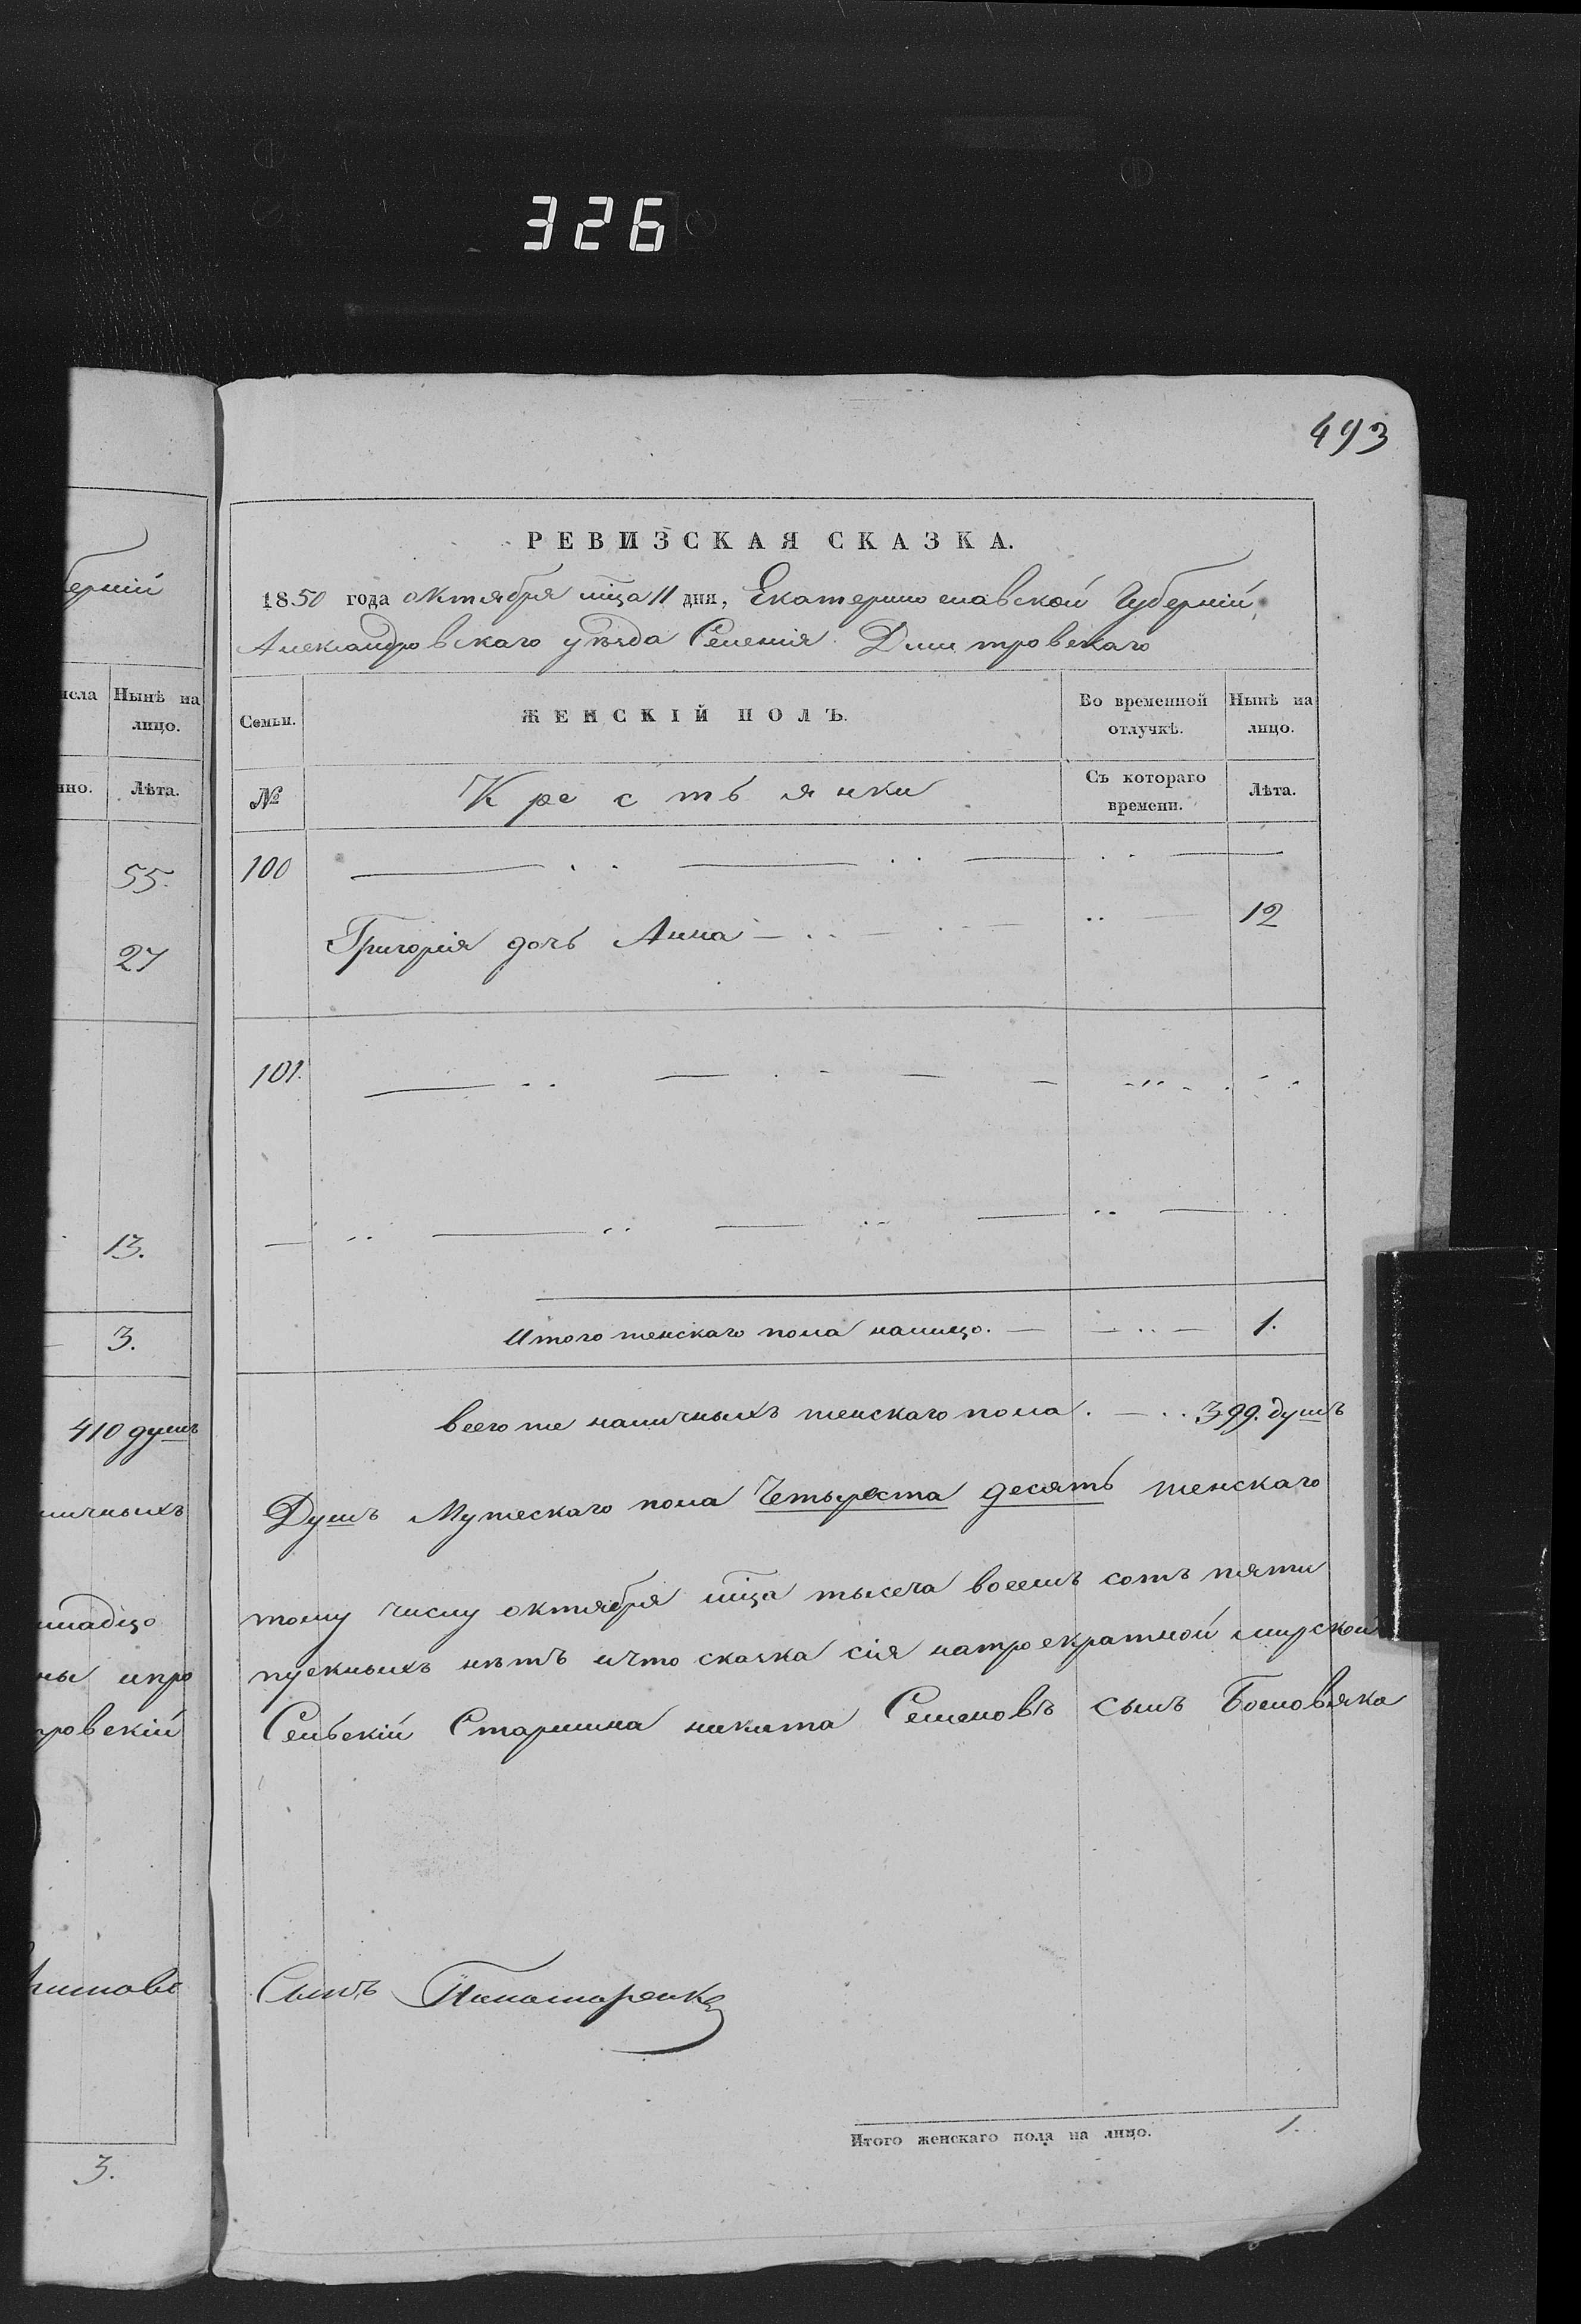 326
493
РЕВИЗСКАЯ СКАЗКА.
1850 года октября мца 11 дня, Екатеринославской Губерній,
Александровскаго уѣзда Селенія Дмитровскаго
Семьи.
ЖЕНСКІЙ ПОЛЪ.
Во временной отлучкѣ.
Нынѣ на лицо.
№
Крестьянки
Съ котораго времени.
Лѣта.
100
Григорія дочь Анна 12
101.
Итого женскаго пола налицо. 1.
всего же наличныхъ женскаго пола. 399. душъ
Душъ Мужескаго пола Четыреста десять женскаго
тому числу октября мца тысеча восемъ сотъ пяти
пускныхъ нѣтъ ичто сказка сія натроекратной мирской
Сельскій Старшина никита Семеновъ сынъ
Сынъ
Итого женскаго пола на лицо. 1.
берній
исла
Нынѣ на лицо.
нно.
Лѣта.
55.
27
13.
3.
410 душъ
личныхъ
ны ипро
ровскій
3.